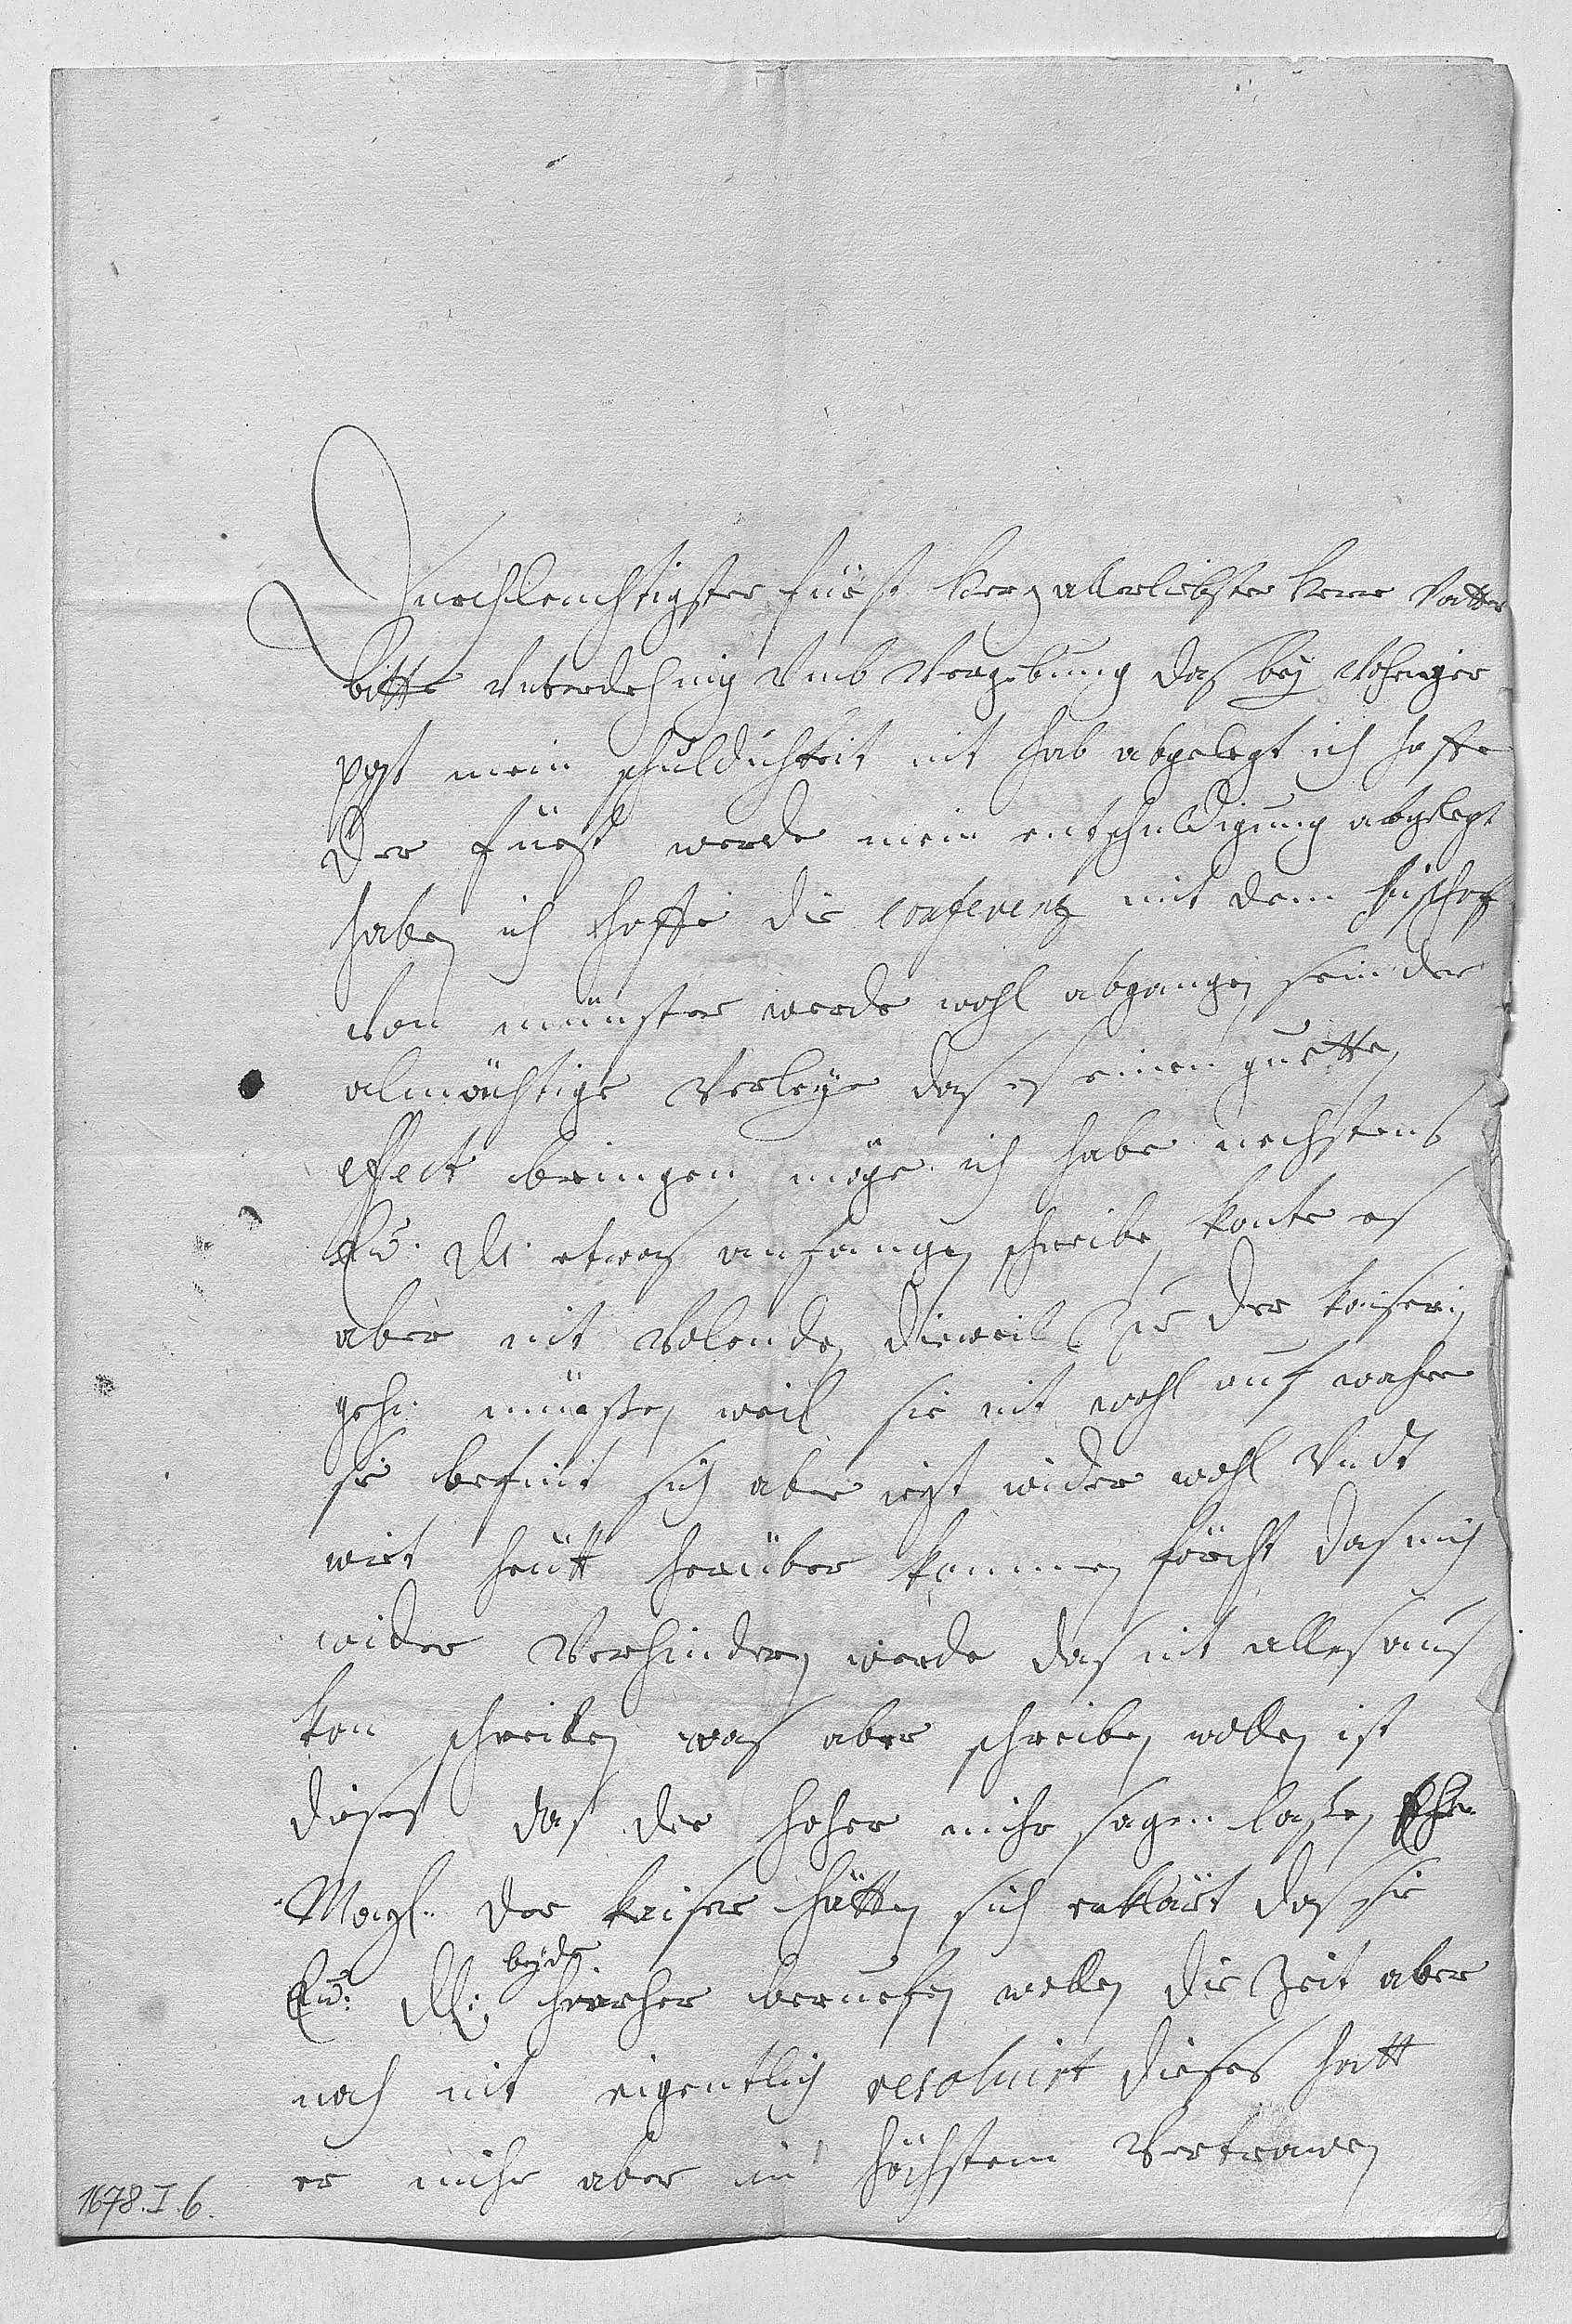 Durchleuchtigster fürst herz allerliebster herr Vatter
bitte Unterdehnig Vmb Vergebung das bey Vohriger
post mein schuldichkeit nit hab abgelegt ich hoffe
der fürst werde mein entschuldigung abgelegt
haben ich hoffe die conferentz mit dem bischof
Von münster werde wohl abgangen sein der
almächtige Verleye das es einen guetten
effect bringen möge ich habe nechstens
Ew: Dl: etwas anfangen schreiben konte es
aber nit Volenden dieweil zu der kaiserin
gehn müesten weil sie nit wohl auf wahre
sie befint sich aber iezt wider wohl Vndt
wirt heütt herüber kommen förcht das mich
wider Verhindern werde das nit alles aus
kan schreiben was aber schreiben wollen ist
dieses das der hoher mihr sagen lassen Ihr
Mayl: der kaiser hätten sich erklärt das sie
beyde
Ew: Dl: hierher beruefen wollen die Zeit aber
noch nit eigentlich resolvirt dieses hatt
er mihr aber in höchstem Vertrauen
1678.I.6.